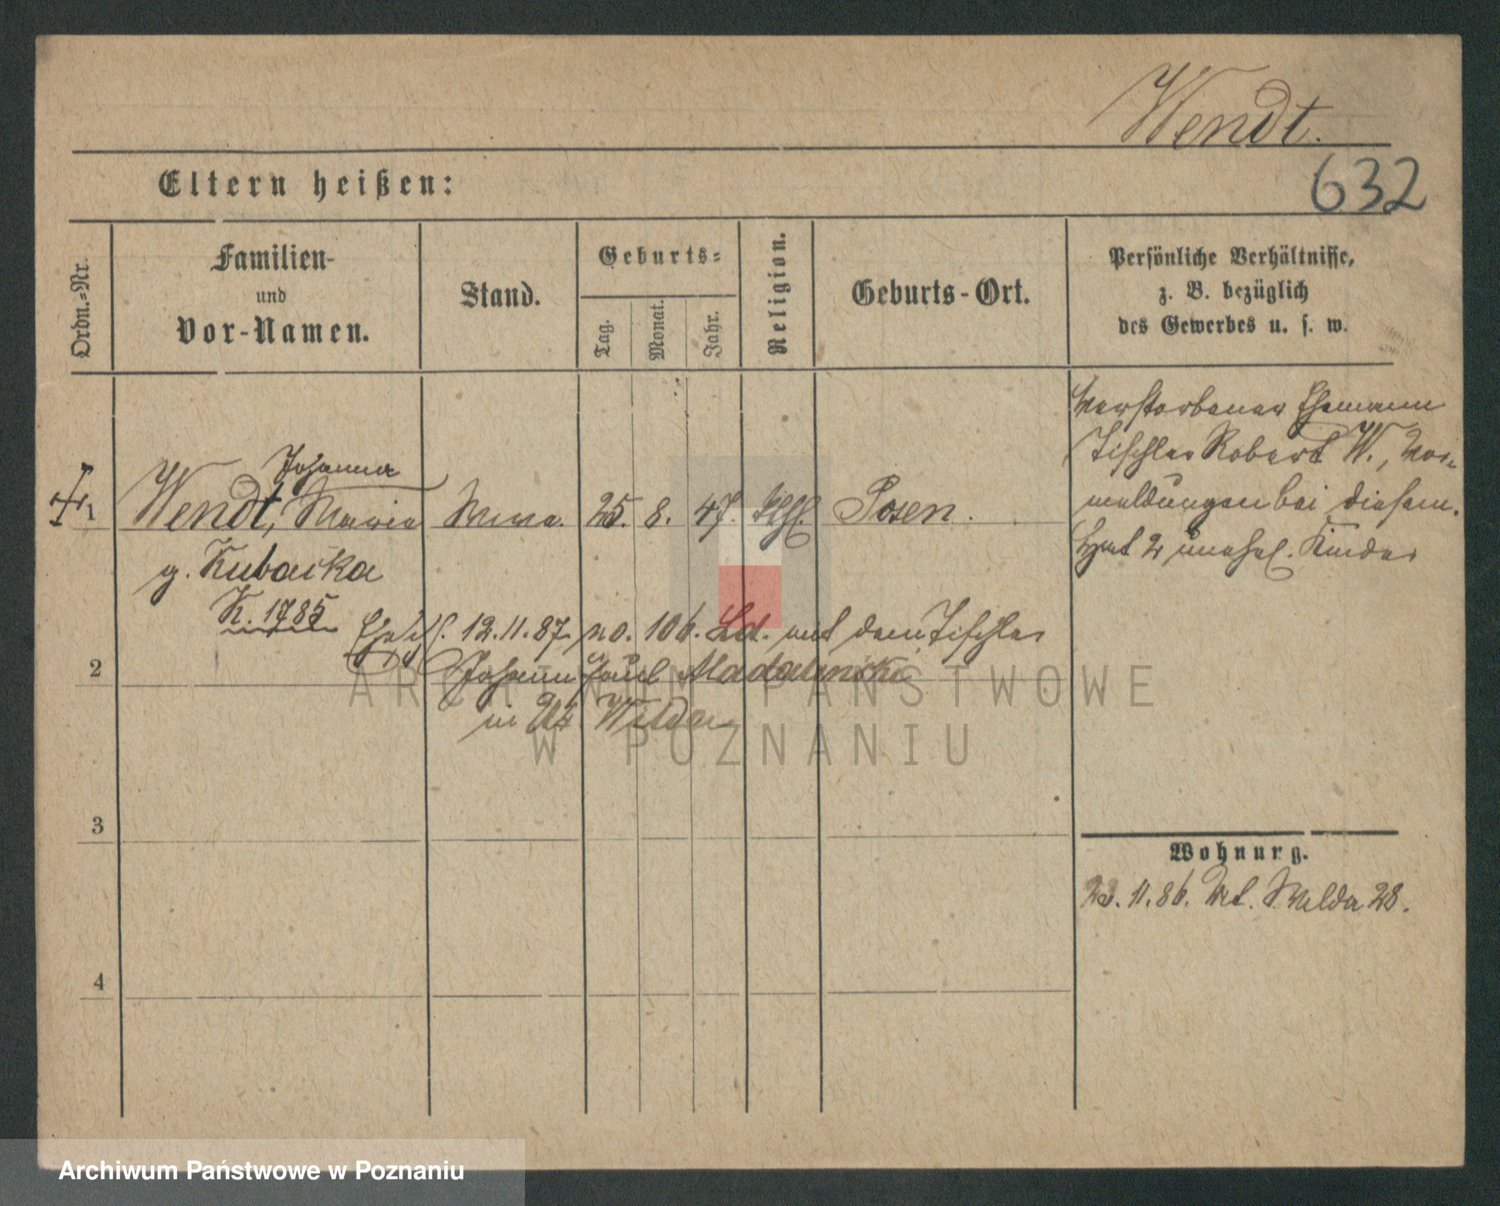 Wendt.
632
Eltern heißen:
Ordn.-Nr.
Familien-
und
Vor-Namen.
Stand.
Geburts-
Tag.
Monat.
Jahr.
Religion.
Geburts-Ort.
Persönliche Verhältnisse,
z. B. bezüglich
des Gewerbes u. s. w.
Verstorbener Ehemann
Tischler Robert W., Vor-
meldungen bei diesem.
Hat 2 unehel. Kinder
Johanna
1 Wendt, Maria Wwe. 25. 8. 47. kth. Posen.
g. Kubacka
K. 1785
Eheschl. 12.11.87. no. 106. mit dem Tischler
2
Johann Paul Madalinski
in Wilda
3
4
Wohnung.
23.11.86. Wilda 28.
ARCHIWUM PAŃSTWOWE
W POZNANIU
Archiwum Państwowe w Poznaniu